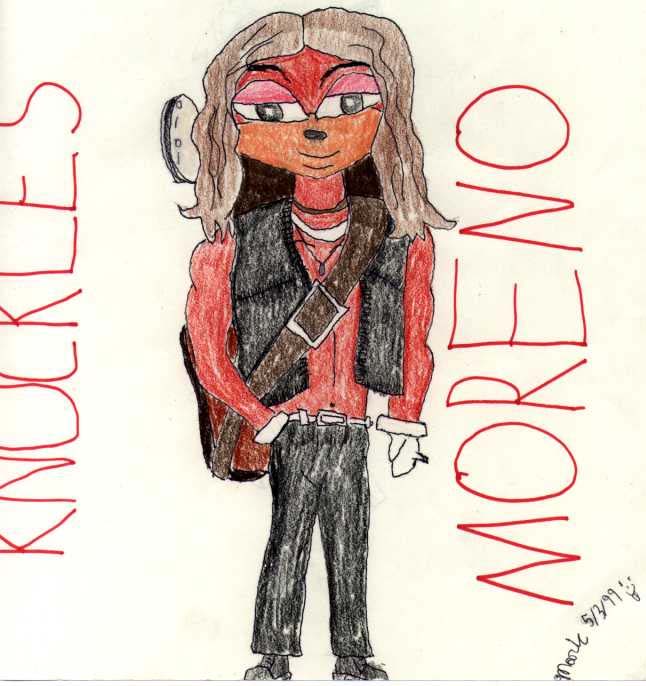 KNUCKLES
MORENO
Mark 5/3/99